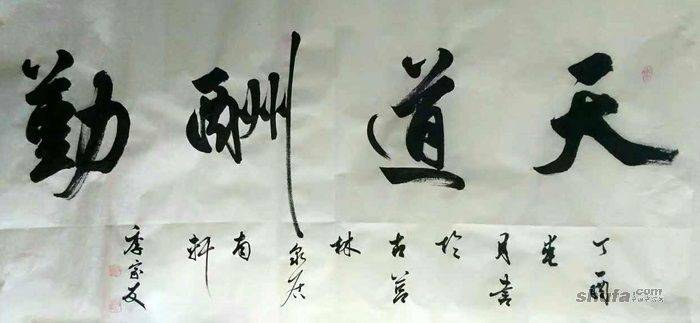 天道酬勤
丁酉
月書於古莒
林泉居
南軒
季家友
shufa.com